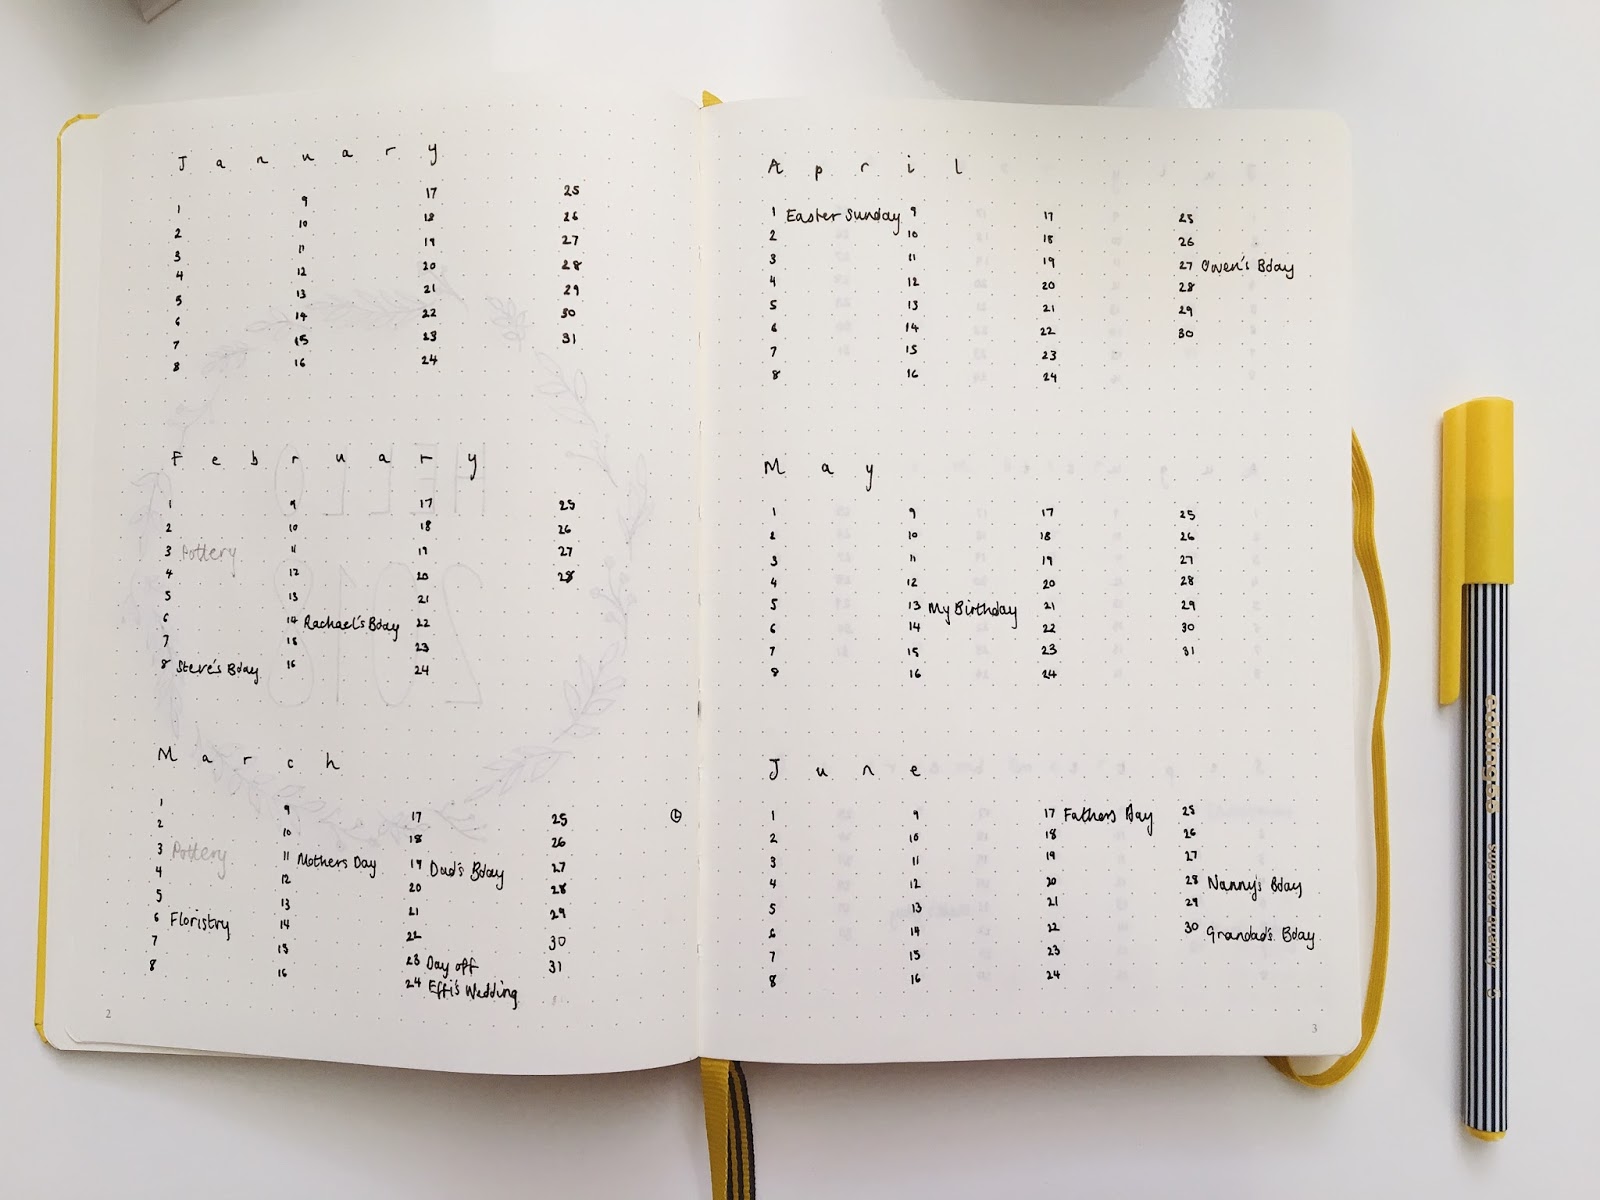 January
1 9 17 25
2 10 18 26
3 11 19 27
4 12 20 28
5 13 21 29
6 14 22 30
7 15 23 31
8 16 24
February
1 9 17 25
2 10 18 26
3 Pottery 11 19 27
4 12 20 28
5 13 21
6 14 Rachael's Bday 22
7 15 23
8 Steve's Bday 16 24
March
1 9 17 25
2 10 18 26
3 Pottery 11 Mothers Day 19 Dad's Bday 27
4 12 20 28
5 13 21 29
6 Floristry 14 22 30
7 15 23 Day off 31
8 16 24 Effi's Wedding
2
April
1 Easter Sunday 9 17 25
2 10 18 26
3 11 19 27 Owen's Bday
4 12 20 28
5 13 21 29
6 14 22 30
7 15 23
8 16 24
May
1 9 17 25
2 10 18 26
3 11 19 27
4 12 20 28
5 13 My Birthday 21 29
6 14 22 30
7 15 23 31
8 16 24
June
1 9 17 Fathers Day 25
2 10 18 26
3 11 19 27
4 12 20 28 Nanny's Bday
5 13 21 29
6 14 22 30 Grandad's Bday
7 15 23
8 16 24
3
HELLO
2018
edding